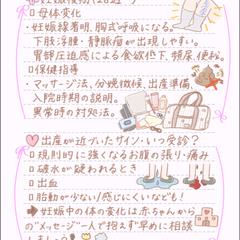 妊娠後期(28週〜)
□母体変化
・妊娠線著明、胸式呼吸になる。
下肢浮腫・静脈瘤が出現しやすい。
胃部圧迫感による食欲低下、頻尿、便秘。
□保健指導
・マッサージ法、分娩徴候、出産準備、
入院時期の説明。
異常時の対処法。
出産が近づいたサイン・いつ受診?
□規則的に強くなるお腹の張り・痛み
□破水が疑われるとき
□出血
□胎動が少ない/感じにくいなども!
➡妊娠中の体の変化は赤ちゃんから
の"メッセージ"一人で抱えず早めに相談
しましょう